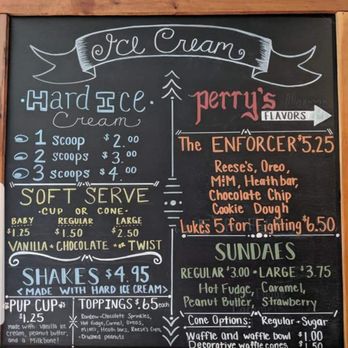 Ice Cream
Hard Ice
Cream
1 scoop $2.00
2 scoops $3.00
3 scoops $4.00
SOFT SERVE
·CUP OR CONE·
BABY REGULAR LARGE
$1.25 $1.50 $2.50
VANILLA · CHOCOLATE · or TWIST
SHAKES $4.95
<MADE WITH HARD ICE CREAM>
PUP CUP
$1.25
made with vanilla ice
cream, peanut butter,
and a Milkbone!
TOPPINGS $.65 each
Rainbow + Chocolate Sprinkles,
Hot Fudge, Caramel, Oreos,
M+M's, Heath bar, Reese's Cups,
Peanuts
Perry's
FLAVORS
The ENFORCER $5.25
Reese's, Oreo,
M+M, Heath bar,
Chocolate Chip
Cookie Dough
Luke's 5 for Fighting $6.50
SUNDAES
REGULAR $3.00 · LARGE $3.75
Hot Fudge, Caramel,
Peanut Butter, Strawberry
Cone Options: Regular + Sugar
Waffle and waffle bowl $1.00
Decorative waffle cones $1.50